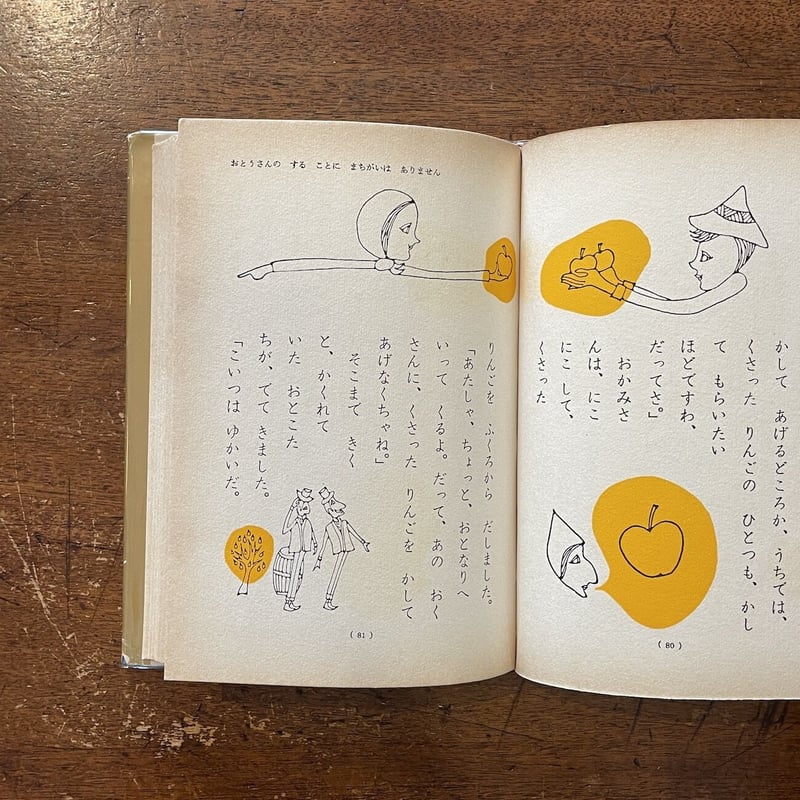 かして あげるどころか、うちでは、
くさった りんごの ひとつも、かし
て もらいたい
ほどですわ、
だってさ。」
おかみさ
んは、にこ
にこ して、
くさった
(80)
おとうさんの する ことに まちがいは ありません
りんごを ふくろから だしました。
「あたしゃ、ちょっと、おとなりへ
いって くるよ。だって、あの おく
さんに、くさった りんごを かして
あげなくちゃね。」
そこまで きく
と、かくれて
いた おとこた
ちが、でて きました。
「こいつは ゆかいだ。
(81)